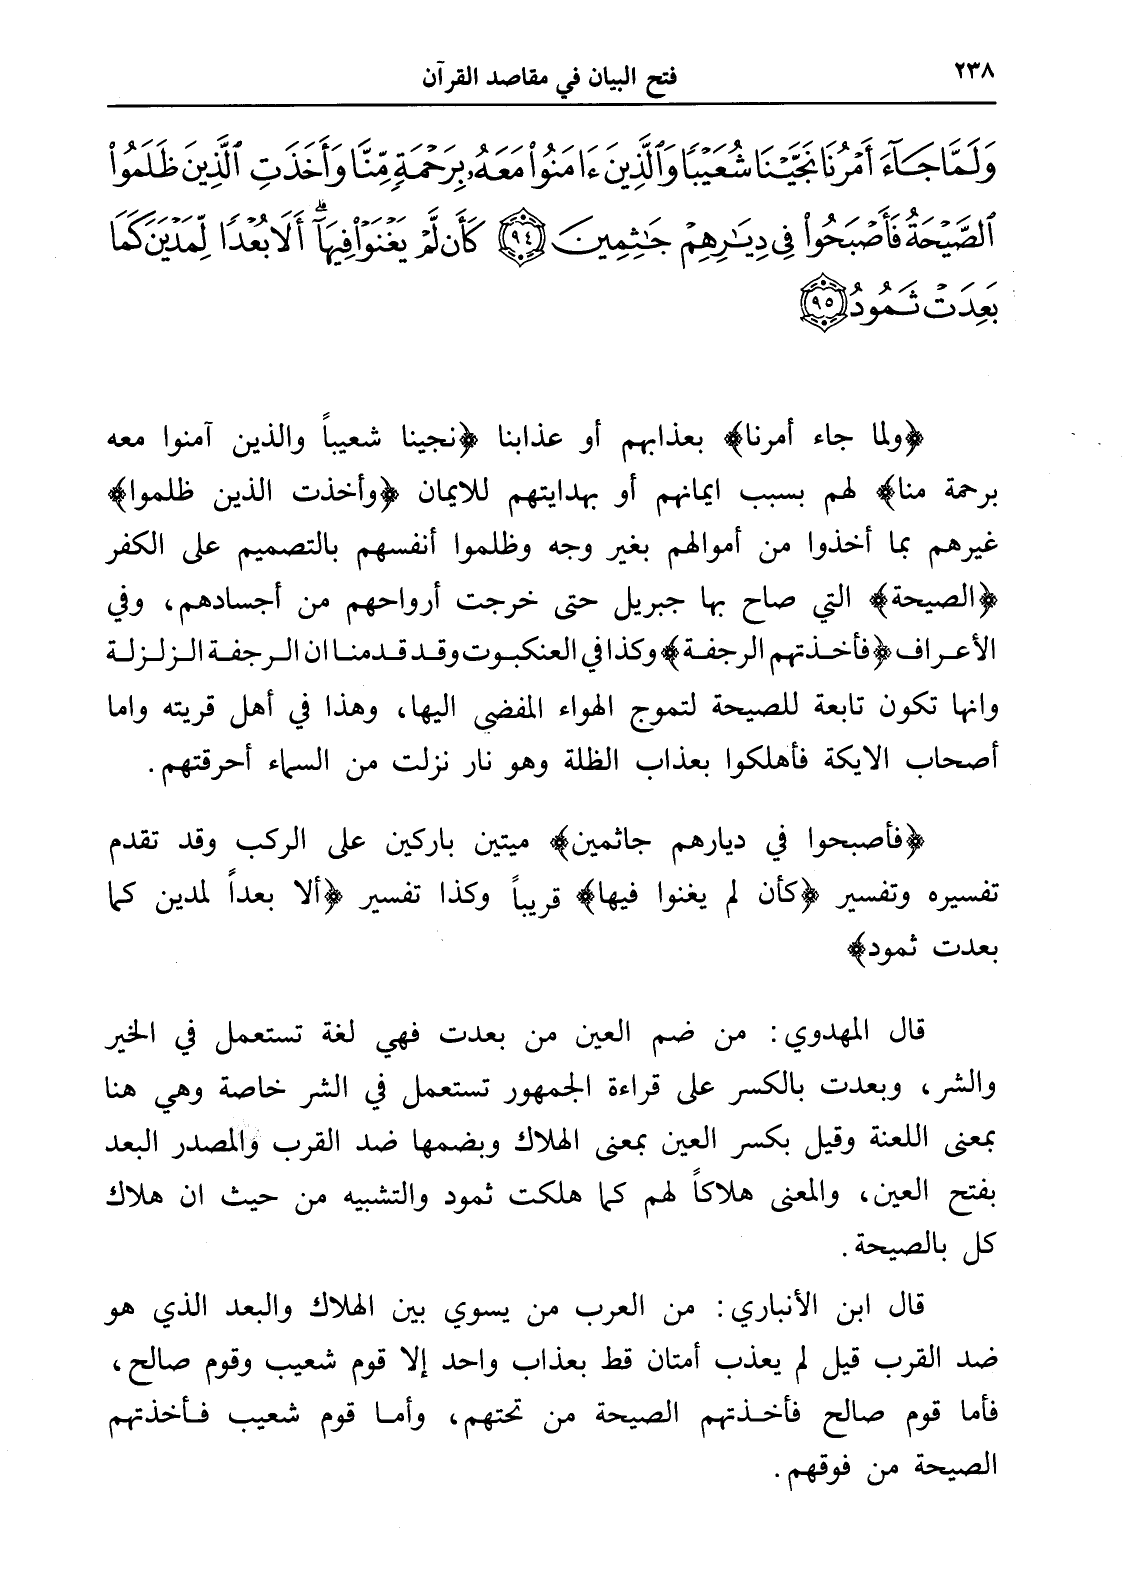 ٢٣٨
فتح البيان في مقاصد القرآن
وَلَمَّا جَآءَ أَمْرُنَا نَجَّيْنَا شُعَيْبًا وَٱلَّذِينَ ءَامَنُوا۟ مَعَهُۥ بِرَحْمَةٍ مِّنَّا وَأَخَذَتِ ٱلَّذِينَ ظَلَمُوا۟
ٱلصَّيْحَةُ فَأَصْبَحُوا۟ فِى دِيَٰرِهِمْ جَٰثِمِينَ ﴿٩٤﴾ كَأَن لَّمْ يَغْنَوْا۟ فِيهَآ ۗ أَلَا بُعْدًا لِّمَدْيَنَ كَمَا
بَعِدَتْ ثَمُودُ ﴿٩٥﴾
﴿ولما جاء أمرنا﴾ بعذابهم أو عذابنا ﴿نجينا شعيباً والذين آمنوا معه
برحمة منا﴾ لهم بسبب ايمانهم أو بهدايتهم للايمان ﴿وأخذت الذين ظلموا﴾
غيرهم بما أخذوا من أموالهم بغير وجه وظلموا أنفسهم بالتصميم على الكفر
﴿الصيحة﴾ التي صاح بها جبريل حتى خرجت أرواحهم من أجسادهم، وفي
الأعراف ﴿فأخذتهم الرجفة﴾ وكذا في العنكبوت وقد قدمنا ان الرجفة الزلزلة
وانها تكون تابعة للصيحة لتموج الهواء المفضي اليها، وهذا في أهل قريته واما
أصحاب الايكة فأهلكوا بعذاب الظلة وهو نار نزلت من السماء أحرقتهم.
﴿فأصبحوا في ديارهم جاثمين﴾ ميتين باركين على الركب وقد تقدم
تفسيره وتفسير ﴿كأن لم يغنوا فيها﴾ قريباً وكذا تفسير ﴿ألا بعداً لمدين كما
بعدت ثمود﴾
قال المهدوي: من ضم العين من بعدت فهي لغة تستعمل في الخير
والشر، وبعدت بالكسر على قراءة الجمهور تستعمل في الشر خاصة وهي هنا
بمعنى اللعنة وقيل بكسر العين بمعنى الهلاك وبضمها ضد القرب والمصدر البعد
بفتح العين، والمعنى هلاكاً لهم كما هلكت ثمود والتشبيه من حيث ان هلاك
كل بالصيحة.
قال ابن الأنباري: من العرب من يسوي بين الهلاك والبعد الذي هو
ضد القرب قيل لم يعذب أمتان قط بعذاب واحد إلا قوم شعيب وقوم صالح،
فأما قوم صالح فأخذتهم الصيحة من تحتهم، وأما قوم شعيب فأخذتهم
الصيحة من فوقهم.